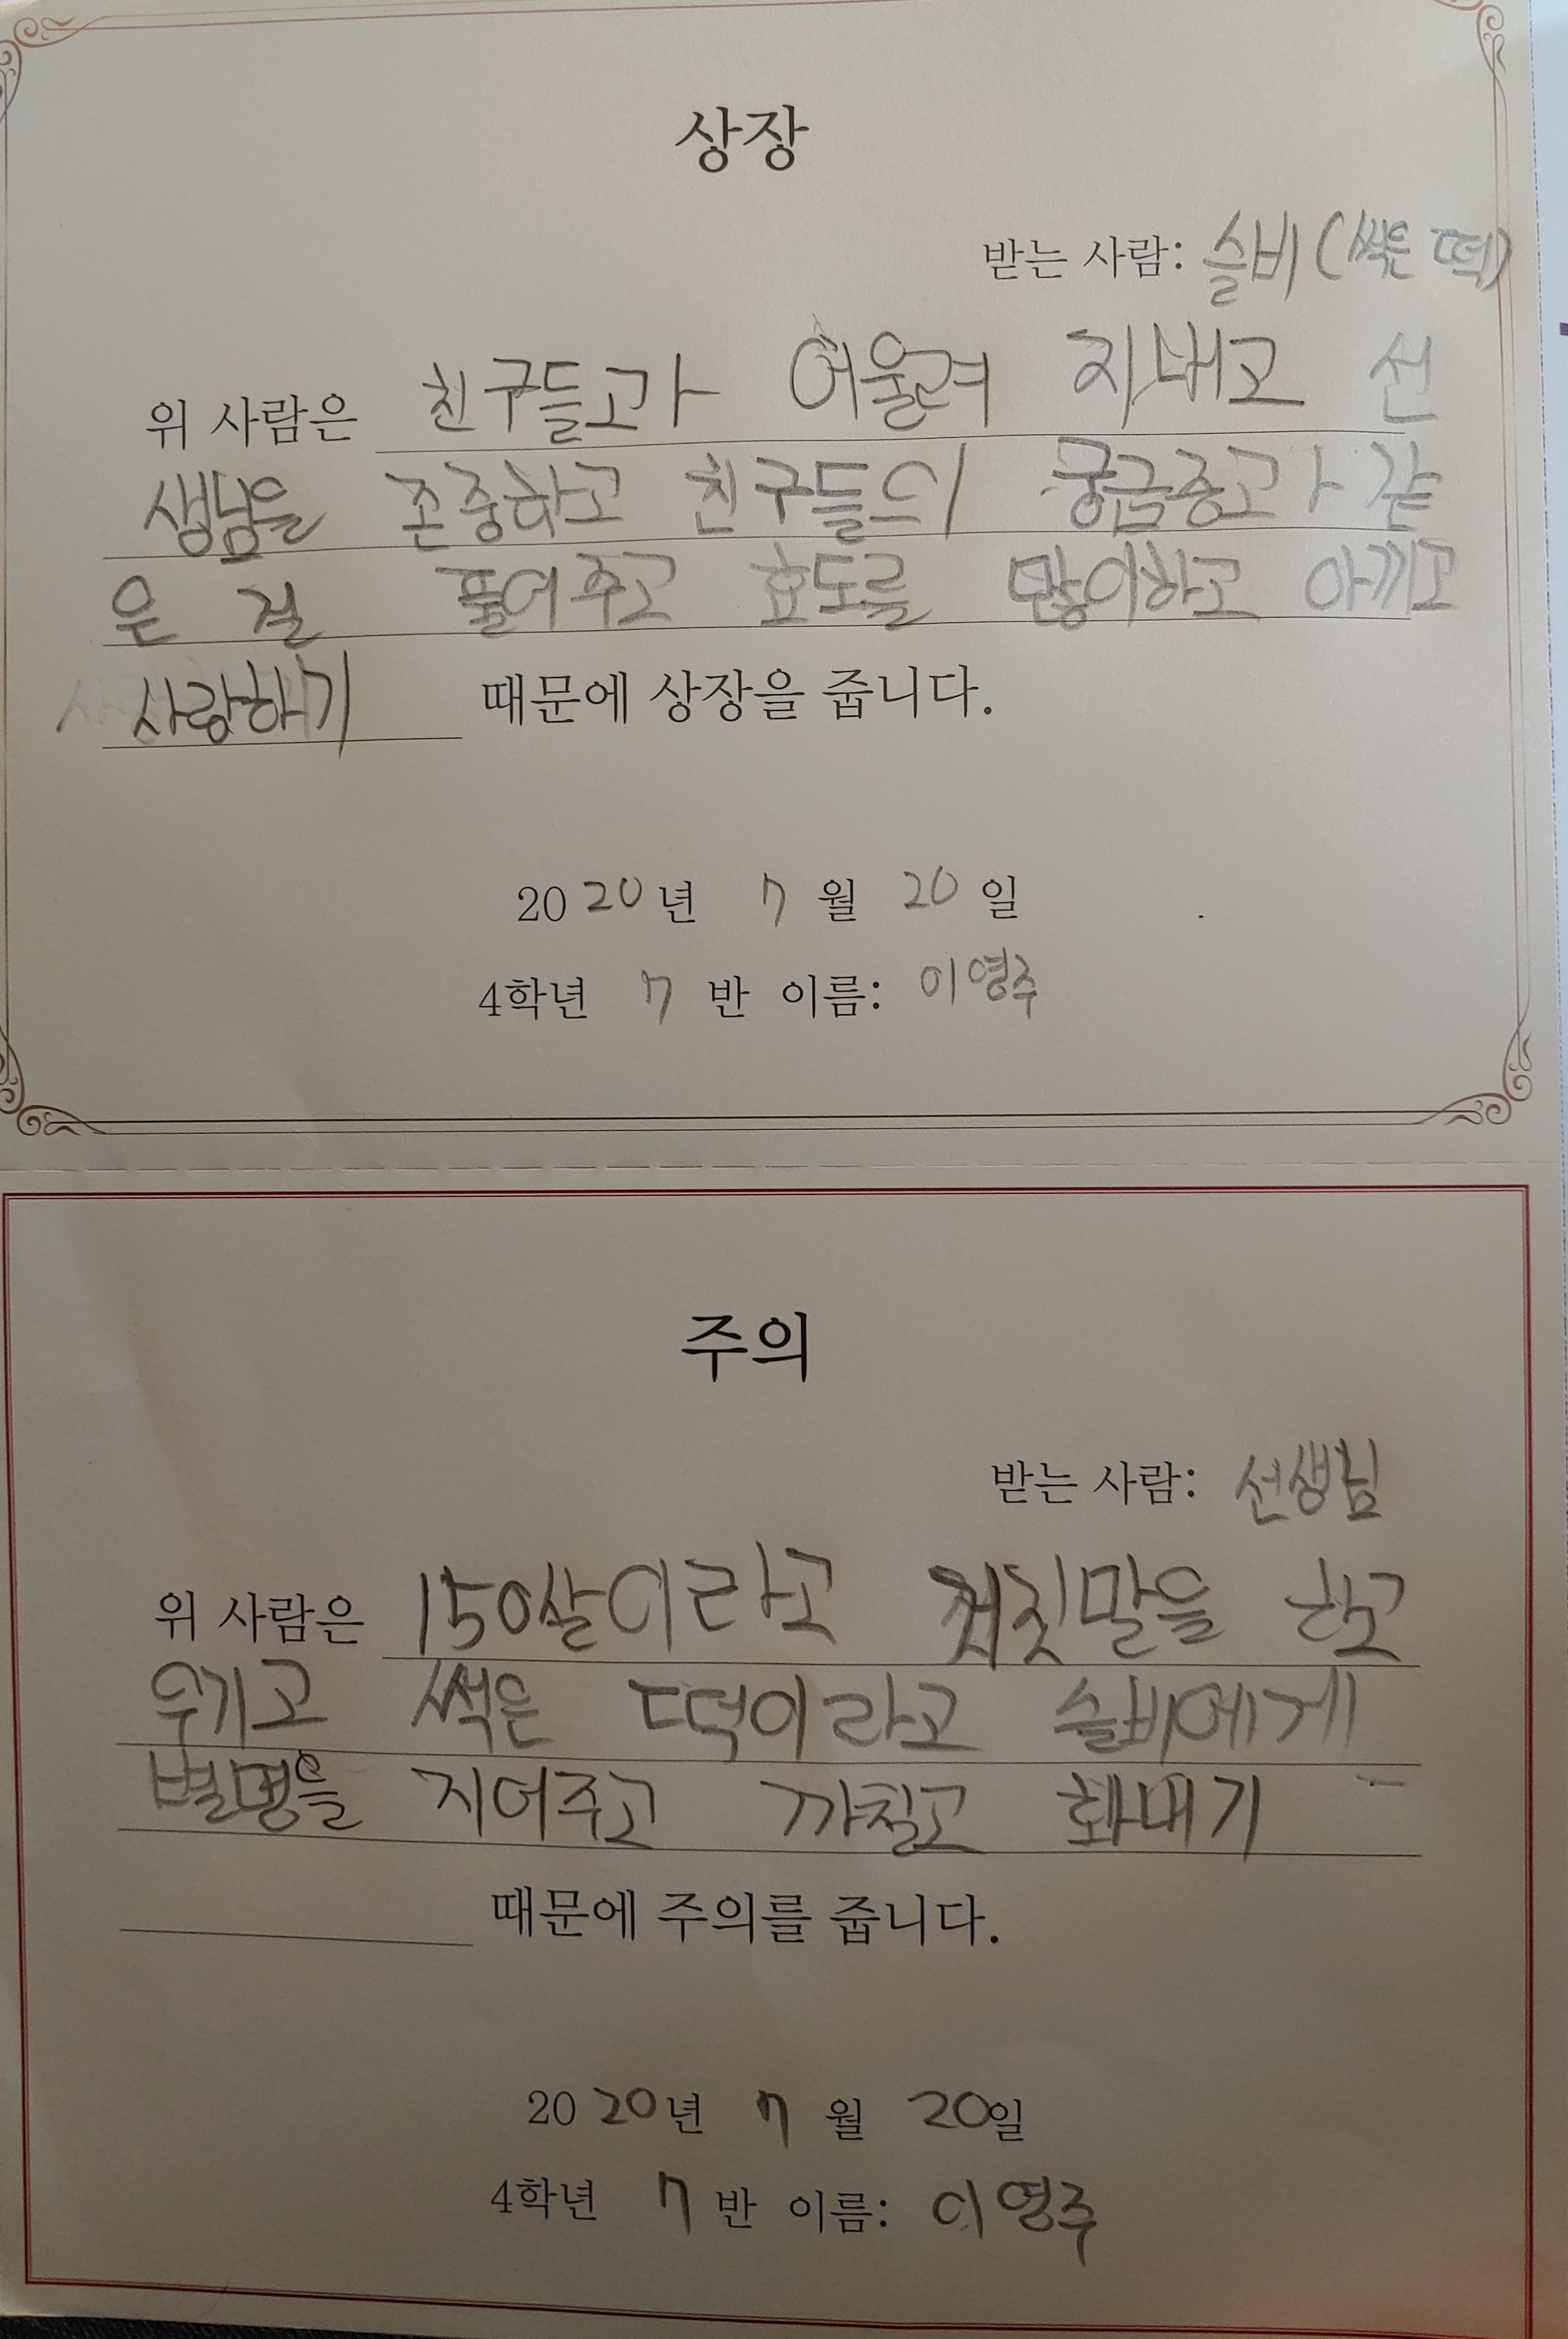 상장
받는 사람: 슬비 (썩은 떡)
위 사람은 친구들과 어울려 지내고 선
생님을 존중하고 친구들의 궁금증과 같
은 걸 풀어주고 효도를 많이하고 아끼고
사랑하기 때문에 상장을 줍니다.
2020년 7월 20일
4학년 7반 이름: 이영주
주의
받는 사람: 선생님
위 사람은 150살이라고 거짓말을 하고
우기고 썩은 떡이라고 슬비에게
별명을 지어주고 까칠고 화내기
때문에 주의를 줍니다.
2020년 7월 20일
4학년 7반 이름: 이영주